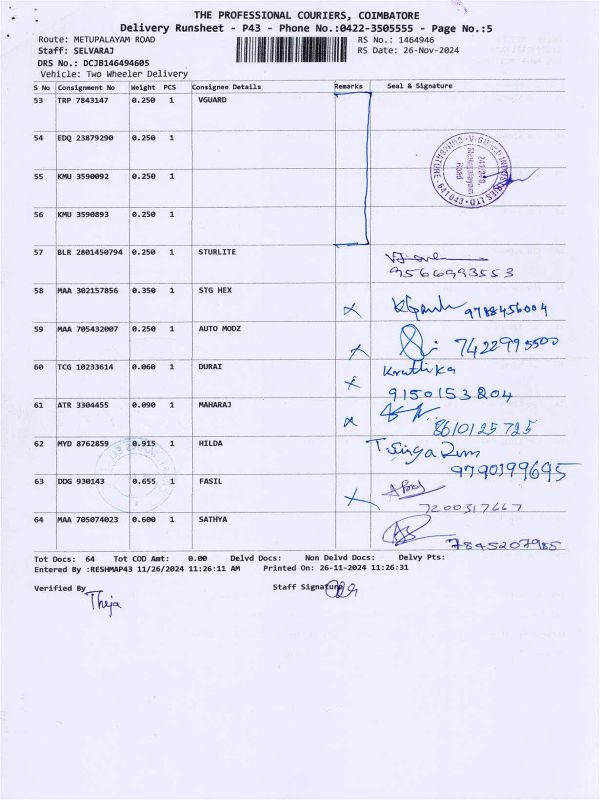 THE PROFESSIONAL COURIERS, COIMBATORE
Delivery Runsheet - P43 - Phone No.:0422-3505555 - Page No.:5
Route: METUPALAYAM ROAD RS No.: 1464946
Staff: SELVARAJ RS Date: 26-Nov-2024
DRS No.: DCJB146494605
Vehicle: Two Wheeler Delivery
S No Consignment No Weight PCS Consignee Details Remarks Seal & Signature
53 TRP 7843147 0.250 1 VGUARD
54 EDQ 23879290 0.250 1
55 KMU 3590092 0.250 1
56 KMU 3590893 0.250 1
57 BLR 2801450794 0.250 1 STURLITE
9566993553
58 MAA 302157856 0.350 1 STG HEX
9788456004
59 MAA 705432007 0.250 1 AUTO MODZ
7422995500
60 TCG 10233614 0.060 1 DURAI
Kruthika
9150153204
61 ATR 3304455 0.090 1 MAHARAJ
8610125725
62 MYD 8762859 0.915 1 HILDA
9790199695
63 DDG 930143 0.655 1 FASIL
7200317667
64 MAA 705074023 0.600 1 SATHYA
7845207985
Tot Docs: 64 Tot COD Amt: 0.00 Delvd Docs: Non Delvd Docs: Delvy Pts:
Entered By :RESHMAP43 11/26/2024 11:26:11 AM Printed On: 26-11-2024 11:26:31
Verified By Staff Signature
Theja